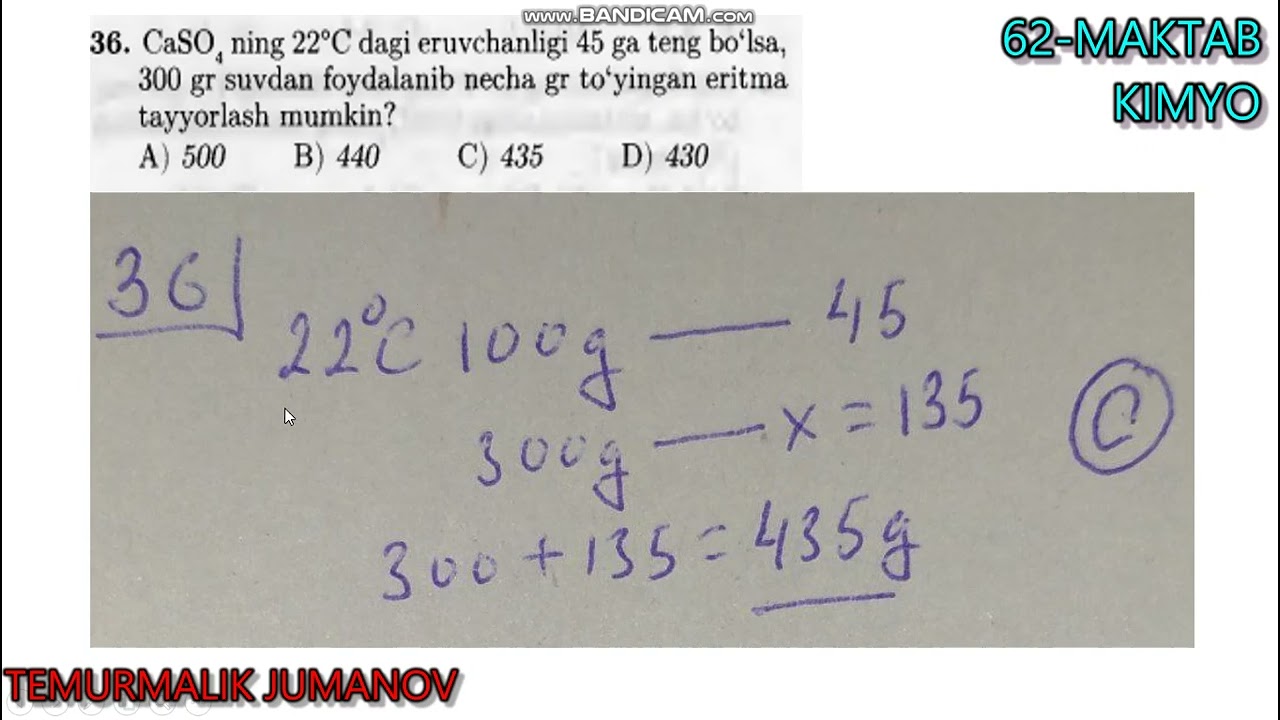 www.BANDICAM.com
62-MAKTAB
KIMYO
36. CaSO₄ ning 22°C dagi eruvchanligi 45 ga teng bo‘lsa,
300 gr suvdan foydalanib necha gr to‘yingan eritma
tayyorlash mumkin?
A) 500 B) 440 C) 435 D) 430
36
22°C 100g — 45
300g — x = 135
C
300 + 135 = 435g
TEMURMALIK JUMANOV